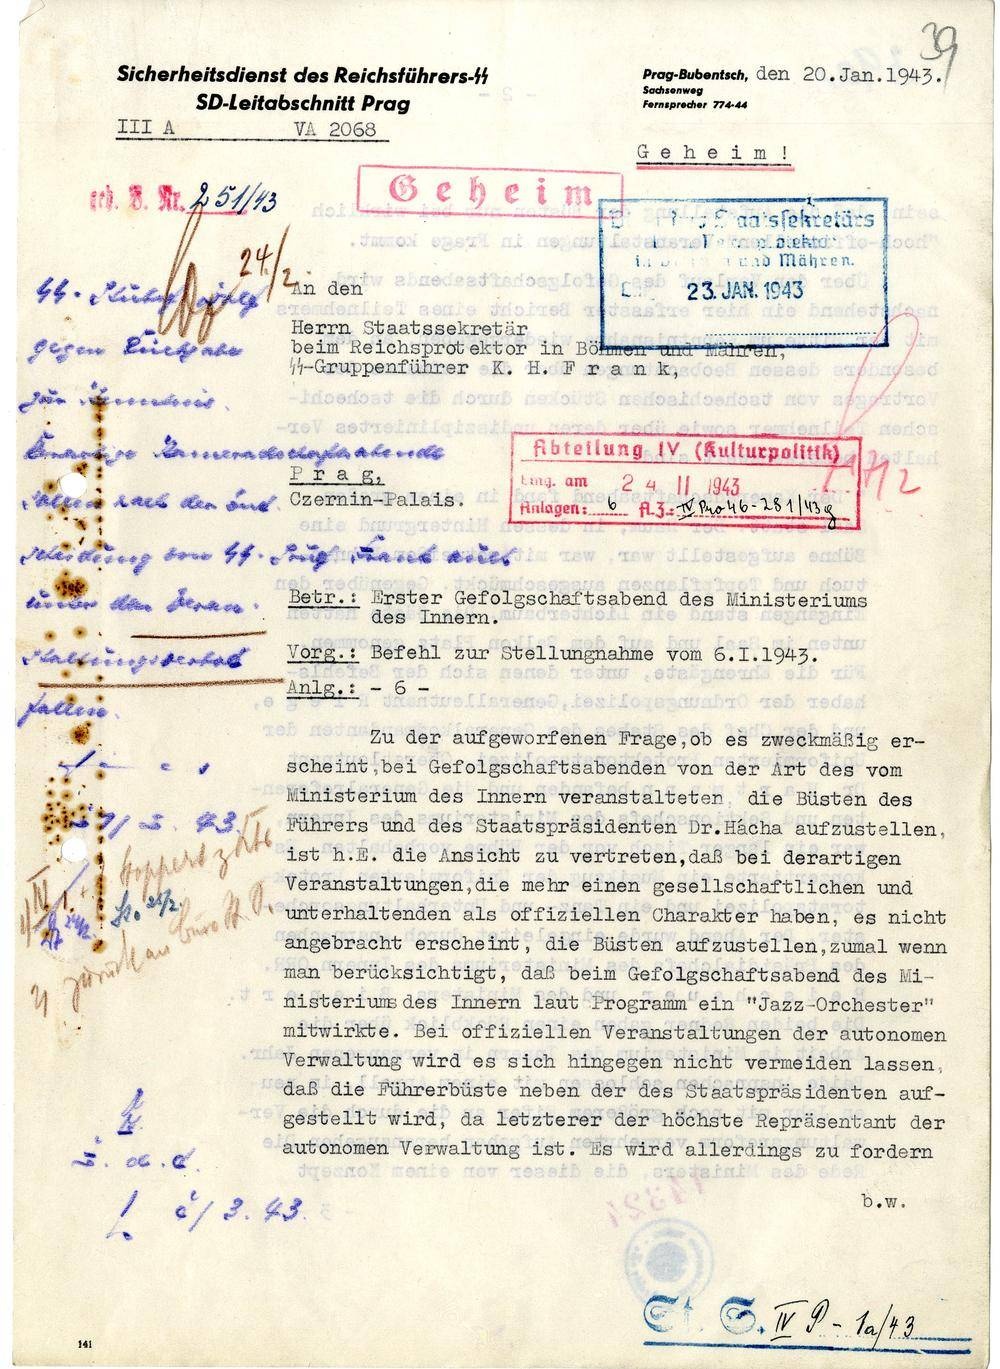 39
Sicherheitsdienst des Reichsführers-SS
SD-Leitabschnitt Prag
III A VA 2068
Prag-Bubentsch, den 20.Jan.1943.
Sachsenweg
Fernsprecher 774-44
Geheim!
Geheim
B. Nr. 251/43
24/2
Staatssekretärs
und Mähren.
23. JAN. 1943
An den
Herrn Staatssekretär
beim Reichsprotektor in Böhmen und Mähren,
SS-Gruppenführer K. H. Frank,
Prag,
Czernin-Palais.
Abteilung IV (Kulturpolitik)
Eing. am 24 II 1943
Anlagen: 6 A.Z.: IV Pro 46-281/43g
SS-
gegen Rückgabe
zur Kenntnis.
Derartige Kameradschaftsabende
fallen nach der Ent
scheidung von SS- Frank nicht
unter den Begriff
fallen.
Betr.: Erster Gefolgschaftsabend des Ministeriums
des Innern.
Vorg.: Befehl zur Stellungnahme vom 6.I.1943.
Anlg.: - 6 -
Zu der aufgeworfenen Frage,ob es zweckmäßig er-
scheint,bei Gefolgschaftsabenden von der Art des vom
Ministerium des Innern veranstalteten, die Büsten des
Führers und des Staatspräsidenten Dr.Hácha aufzustellen,
ist h.E. die Ansicht zu vertreten,daß bei derartigen
Veranstaltungen,die mehr einen gesellschaftlichen und
unterhaltenden als offiziellen Charakter haben, es nicht
angebracht erscheint, die Büsten aufzustellen,zumal wenn
man berücksichtigt, daß beim Gefolgschaftsabend des Mi-
nisteriums des Innern laut Programm ein "Jazz-Orchester"
mitwirkte. Bei offiziellen Veranstaltungen der autonomen
Verwaltung wird es sich hingegen nicht vermeiden lassen,
daß die Führerbüste neben der des Staatspräsidenten auf-
gestellt wird, da letzterer der höchste Repräsentant der
autonomen Verwaltung ist. Es wird allerdings zu fordern
b.w.
zurück an Büro
z. d. A.
3.43.
St. S. IV P - 1a/43
141